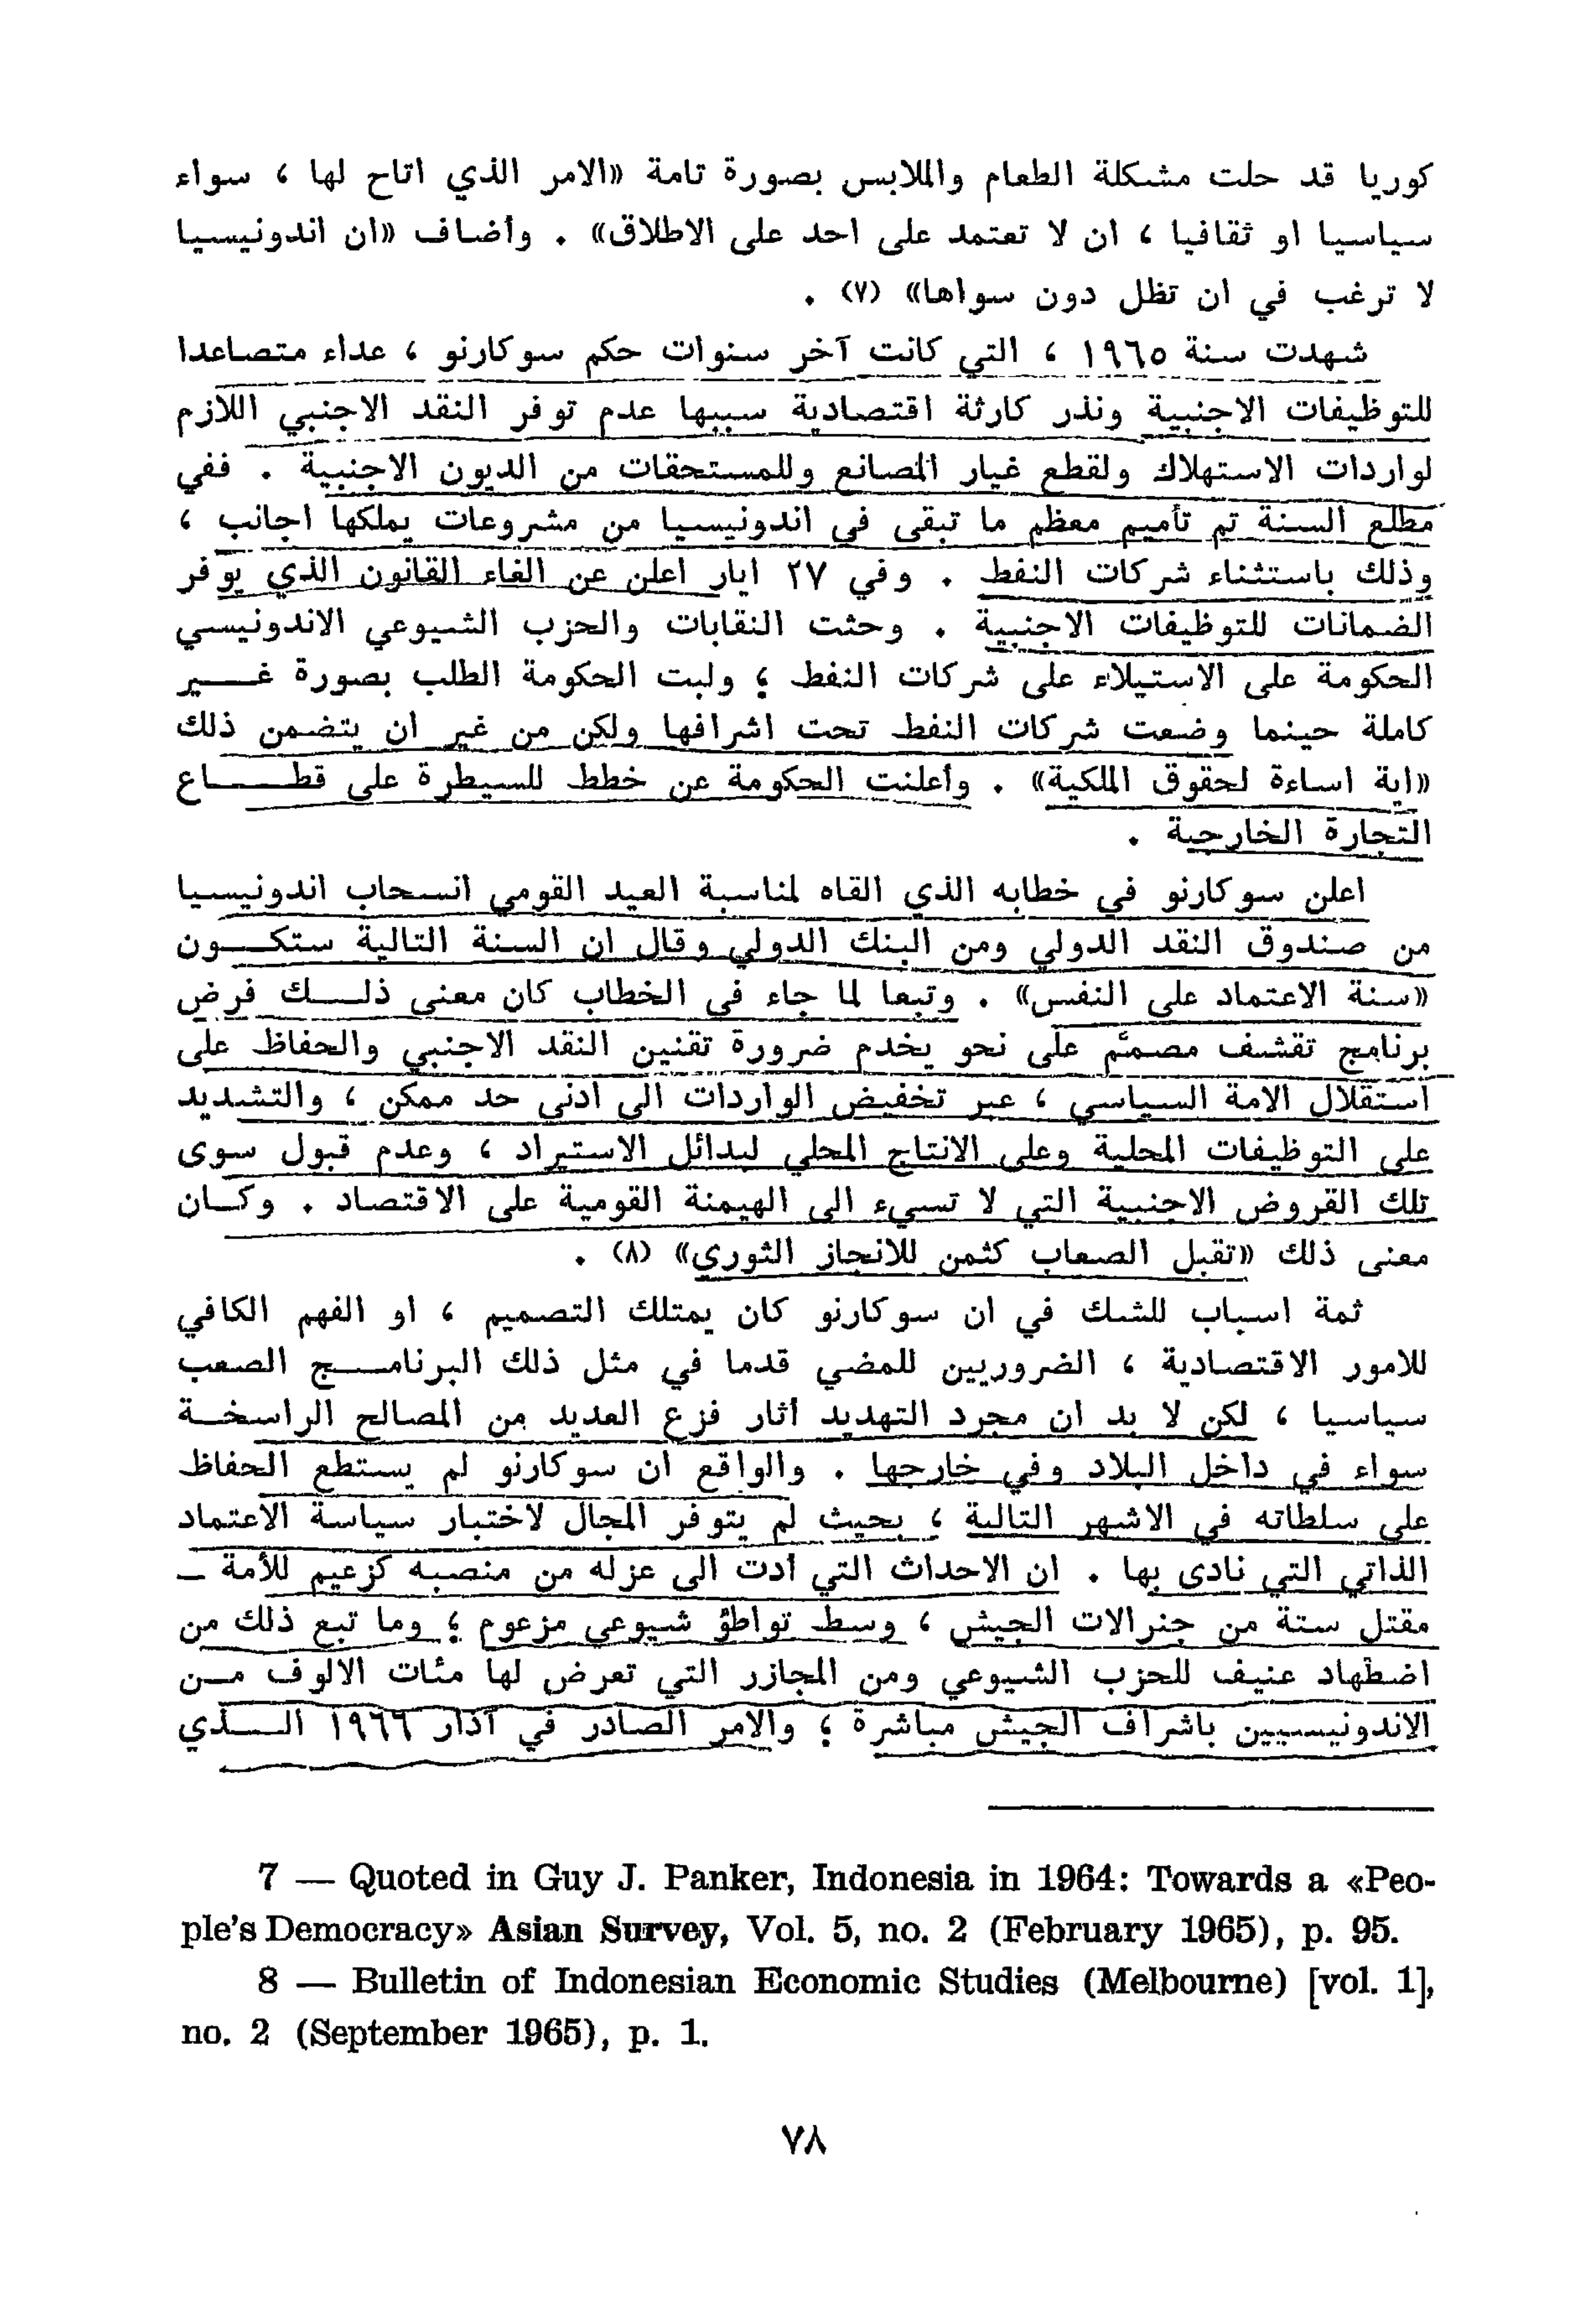 كوريا قد حلت مشكلة الطعام والملابس بصورة تامة «الامر الذي اتاح لها ، سواء
سياسيا او ثقافيا ، ان لا تعتمد على احد على الاطلاق» . وأضاف «ان اندونيسيا
لا ترغب في ان تظل دون سواها» (٧) .
شهدت سنة ١٩٦٥ ، التي كانت آخر سنوات حكم سوكارنو ، عداء متصاعدا
للتوظيفات الاجنبية ونذر كارثة اقتصادية سببها عدم توفر النقد الاجنبي اللازم
لواردات الاستهلاك ولقطع غيار المصانع وللمستحقات من الديون الاجنبية . ففي
مطلع السنة تم تأميم معظم ما تبقى في اندونيسيا من مشروعات يملكها اجانب ،
وذلك باستثناء شركات النفط . وفي ٢٧ ايار اعلن عن الغاء القانون الذي يوفر
الضمانات للتوظيفات الاجنبية . وحثت النقابات والحزب الشيوعي الاندونيسي
الحكومة على الاستيلاء على شركات النفط ؛ ولبت الحكومة الطلب بصورة غـــير
كاملة حينما وضعت شركات النفط تحت اشرافها ولكن من غير ان يتضمن ذلك
«اية اساءة لحقوق الملكية» . وأعلنت الحكومة عن خطط للسيطرة على قطـــاع
التجارة الخارجية .
اعلن سوكارنو في خطابه الذي القاه لمناسبة العيد القومي انسحاب اندونيسيا
من صندوق النقد الدولي ومن البنك الدولي وقال ان السنة التالية ستكـــون
«سنة الاعتماد على النفس» . وتبعا لما جاء في الخطاب كان معنى ذلـــك فرض
برنامج تقشف مصمَّم على نحو يخدم ضرورة تقنين النقد الاجنبي والحفاظ على
استقلال الامة السياسي ، عبر تخفيض الواردات الى ادنى حد ممكن ، والتشديد
على التوظيفات المحلية وعلى الانتاج المحلي لبدائل الاستيراد ، وعدم قبول سوى
تلك القروض الاجنبية التي لا تسيء الى الهيمنة القومية على الاقتصاد . وكـان
معنى ذلك «تقبل الصعاب كثمن للانجاز الثوري» (٨) .
ثمة اسباب للشك في ان سوكارنو كان يمتلك التصميم ، او الفهم الكافي
للامور الاقتصادية ، الضروريين للمضي قدما في مثل ذلك البرنامـــج الصعب
سياسيا ، لكن لا بد ان مجرد التهديد أثار فزع العديد من المصالح الراسخـة
سواء في داخل البلاد وفي خارجها . والواقع ان سوكارنو لم يستطع الحفاظ
على سلطاته في الاشهر التالية ؛ بحيث لم يتوفر المجال لاختبار سياسة الاعتماد
الذاتي التي نادى بها . ان الاحداث التي أدت الى عزله من منصبه كزعيم للأمة ــ
مقتل ستة من جنرالات الجيش ، وسط تواطؤ شيوعي مزعوم ؛ وما تبع ذلك من
اضطهاد عنيف للحزب الشيوعي ومن المجازر التي تعرض لها مئات الالوف مـن
الاندونيسيين باشراف الجيش مباشرة ؛ والامر الصادر في آذار ١٩٦٦ الـــذي
7 — Quoted in Guy J. Panker, Indonesia in 1964: Towards a «Peo-
ple's Democracy» Asian Survey, Vol. 5, no. 2 (February 1965), p. 95.
8 — Bulletin of Indonesian Economic Studies (Melbourne) [vol. 1],
no. 2 (September 1965), p. 1.
٧٨